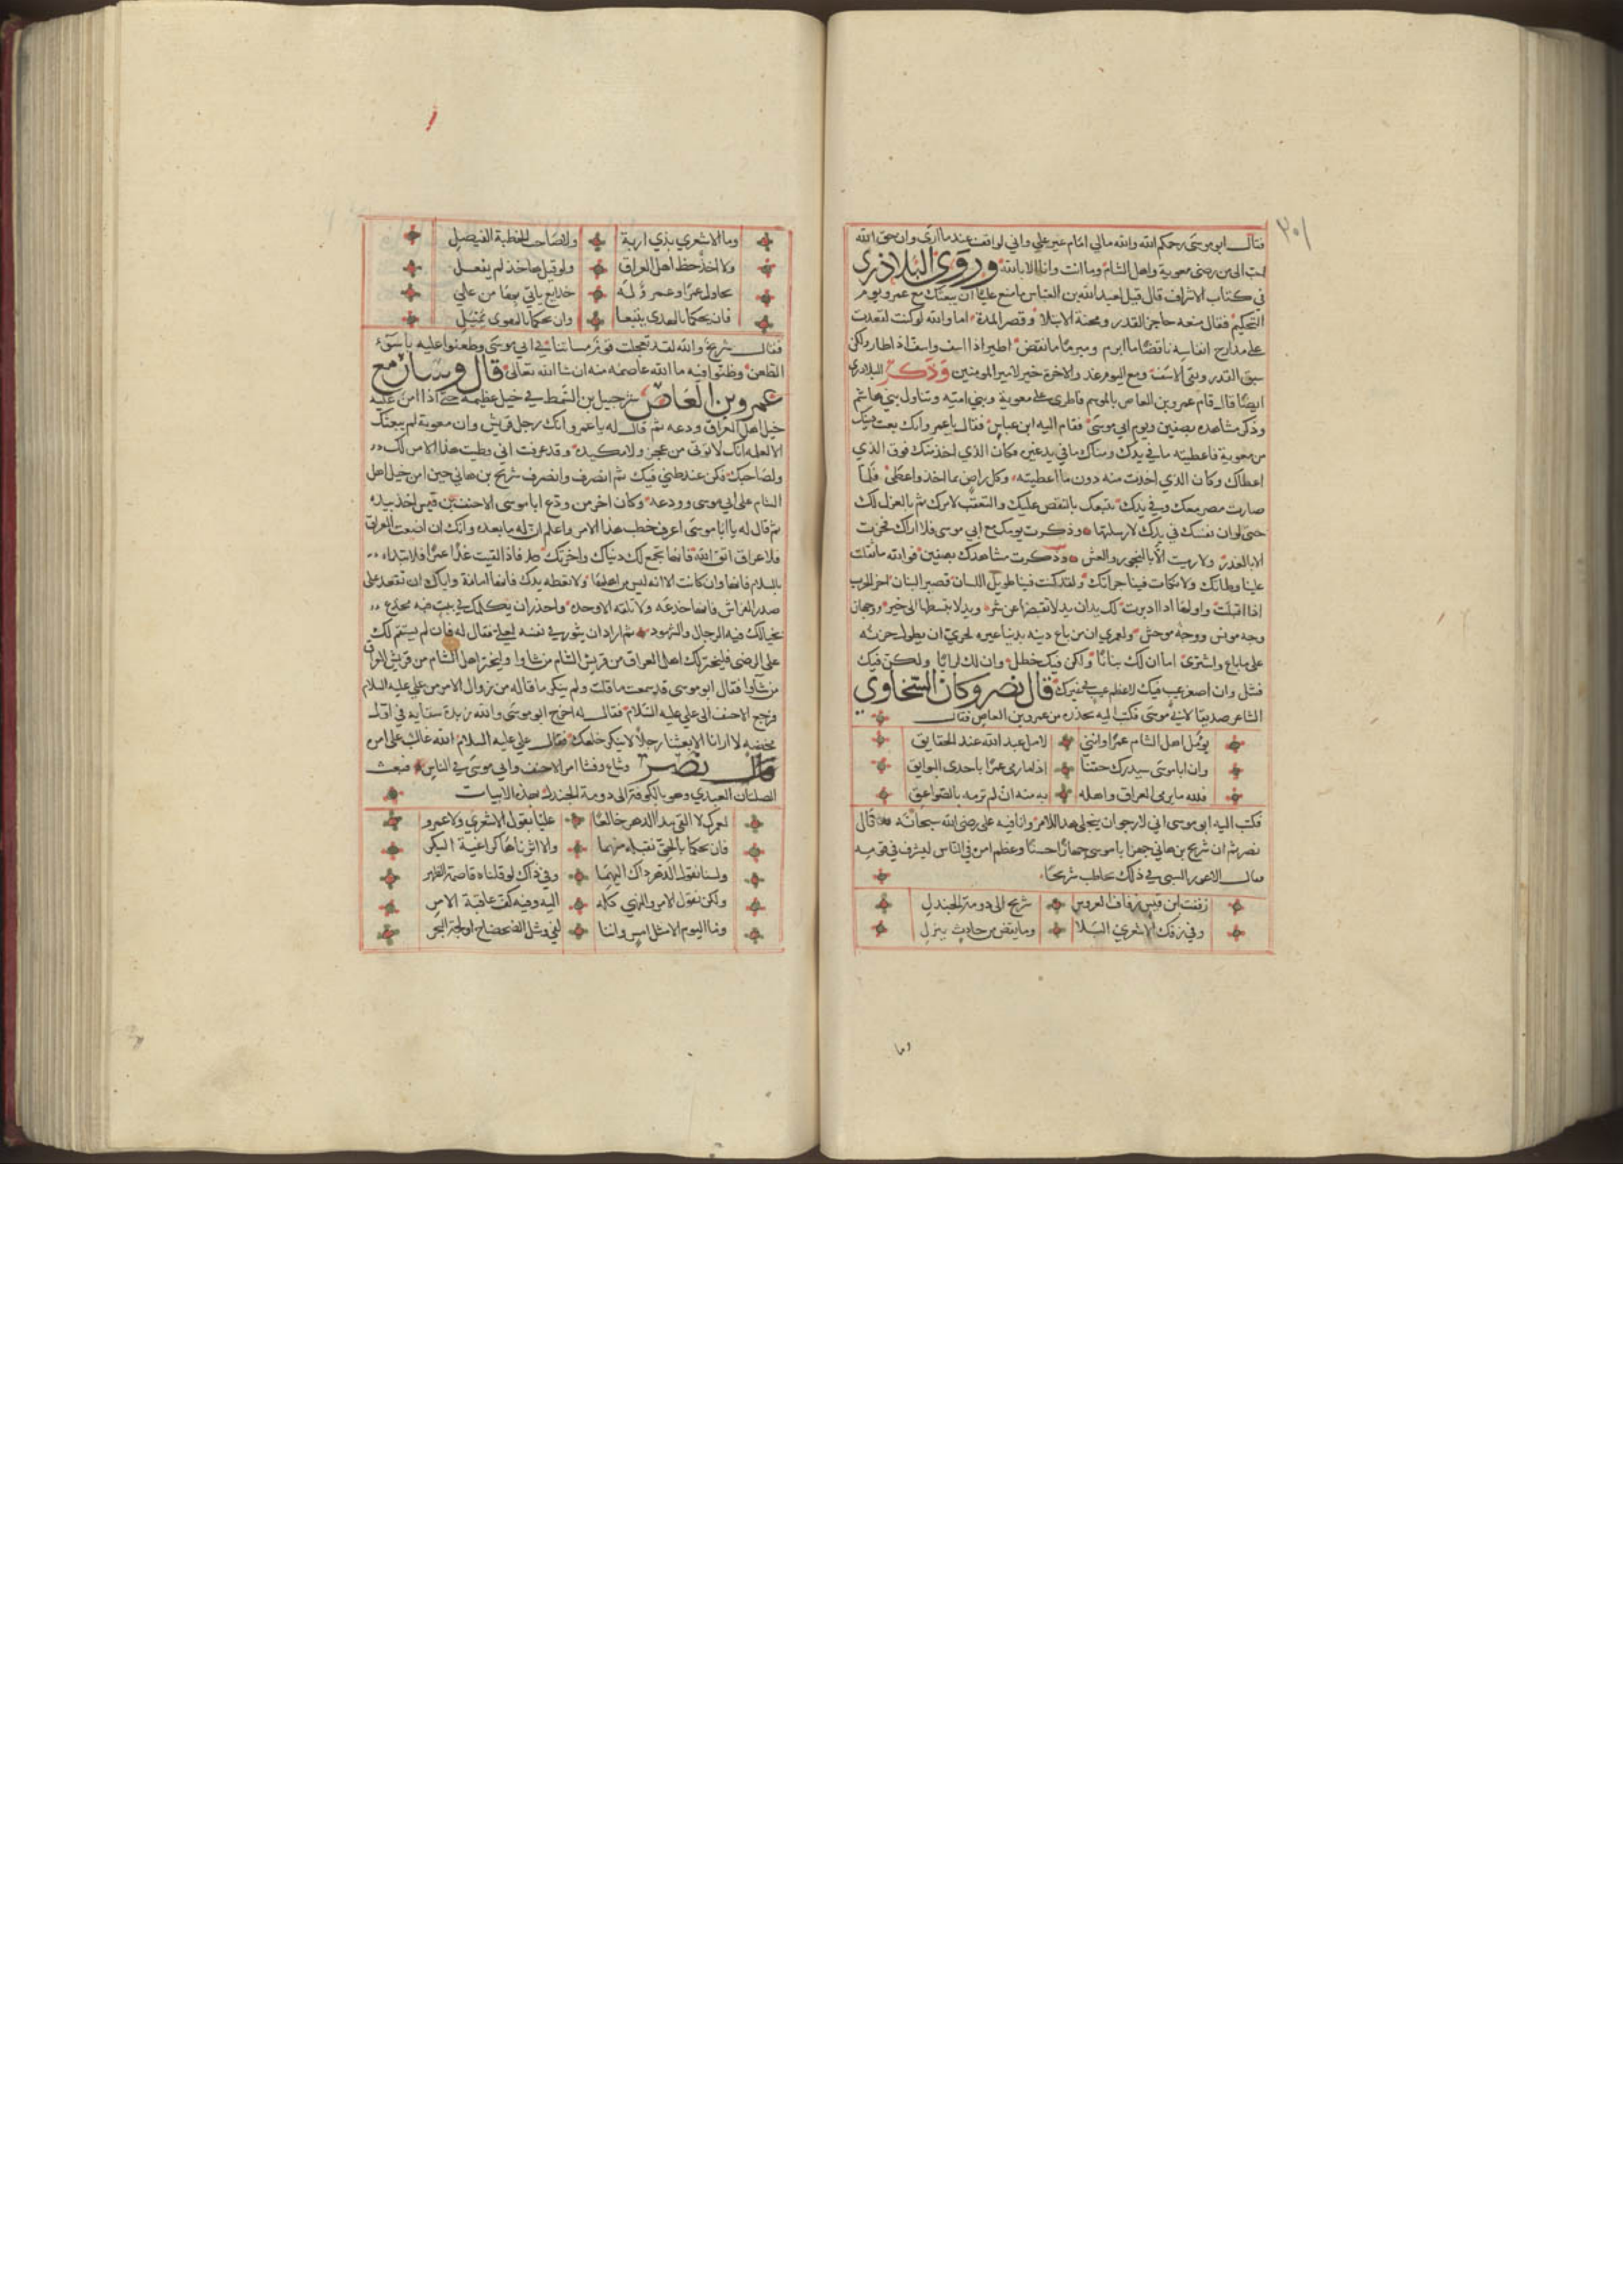 ٣٠١
فقال ابو موسى رحمكم الله والله مالي امام غير علي واني لواقف عند ما ارى وان حق الله
احب الي من رضى معوية واهل الشام وما انت وانا الا بالله وروى البلاذري
في كتاب الاشراف قال قيل لعبد الله بن العباس ما منع عليًا ان يبعثك مع عمرو يوم
التحكيم فقال منعه حاجز القدر ومحنة الابتلا وقصر المدة اما والله لو كنت لقعدت
على مدارج انفاسه ناقضًا ما ابرم ومبرمًا ما نقض اطير اذا اسف واسف اذا طار ولكن
سبق القدر وبقى الاسف ومع اليوم غد والاخرة خير لامير المومنين وذكر البلاذري
ايضًا قال قام عمرو بن العاص بالموسم فاطرى على معوية وبني امية وتناول بني هاشم
وذكر مشاهده بصفين ويوم ابي موسى فقام اليه ابن عباس فقال يا عمرو انك بعت دينك
من معوية فاعطيته ما في يدك ومناك ما في يد غيره فكان الذي اخذ منك فوق الذي
اعطاك وكان الذي اخذت منه دون ما اعطيته وكل راض بما اخذ واعطى فلما
صارت مصر معك وفي يدك تتبعك بالنقض عليك والتعقب لامرك ثم بالعزل لك
حتى لو ان نفسك في يدك لارسلتها وذكرت يومك مع ابي موسى فلا اراك فخرت
الا بالغدر ولا رميت الا بالفجور والغش وذكرت مشاهدك بصفين فوالله ما ثقلت
علينا وطاتك ولا نكات فينا جراتك ولقد كنت فينا طويل اللسان قصير البنان اخر الحرب
اذا اقبلت واولها اذا ادبرت لك يدان يد لا تقبضها عن شر ويد لا تبسطها الى خير ووجهان
وجه مونس ووجه موحش ولعمري ان من باع دينه بدنيا غيره لحري ان يطول حزنه
على ما باع واشترى اما ان لك بيانًا ولكن فيك خطل وان لك لرايًا ولكن فيك
فشل وان اصغر عيب فيك لاعظم عيب في غيرك قال نصر وكان النجاوي
الشاعر صديقًا لابي موسى فكتب اليه يحذره من عمرو بن العاص فقال
يومل اهل الشام عمرًا وانني لامل عبد الله عند الحقايق
وان ابا موسى سيدرك حقنا اذا ما رمى عمرًا باحدى البوايق
فلله ما يرمى العراق واهله به منه ان لم ترمه بالصواعق
فكتب اليه ابو موسى اني لارجو ان ينجلي هذا الامر وانا فيه على رضى الله سبحانه قال
نصر ثم ان شريح بن هاني جهز ابا موسى جهازًا حسنًا وعظم امره في الناس ليشرف في قومه
فقال الاعور الشني في ذلك يخاطب شريحًا
زففت ابن قيس زفاف العروس شريح الى دومة الجندل
وفي زفك الاشعري البلا وما يقض من حادث ينزل
وما
وما الاشعري بذي اربة ولا صاحب الخطبة الفيصل
ولا اخذًا حظ اهل العراق ولو قيل ها خذ لم يفعل
يحاول عمرًا وعمرو له خدايع ياتي بها من علي
فان يحكما بالهدى يتبعا وان يحكما بالهوى يميل
فقال شريح والله لقد تعجلت قوم مساتنا في ابي موسى وطعنوا عليه باسوء
الطعن وظنوا فيه ما الله عاصمه منه ان شا الله تعالى قال وسار مع
عمرو بن العاص شرحبيل بن السمط في خيل عظيمة حتى اذا امن عليه
خيل اهل العراق ودعه ثم قال له يا عمرو انك رجل قريش وان معوية لم يبعثك
الا لعلمه انك لا توتى من عجز ولا مكيدة وقد عرفت اني وطيت هذا الامر لك
ولصاحبك فكن عند ظني فيك ثم انصرف وانصرف شريح بن هاني حين امن خيل اهل
الشام على ابي موسى وودعه وكان اخر من ودع ابا موسى الاحنف بن قيس اخذ بيده
ثم قال له يا ابا موسى اعرف خطب هذا الامر واعلم ان له ما بعده وانك ان اضعت العراق
فلا عراق اتق الله فانها تجمع لك دنياك واخرتك واذا لقيت غدًا عمرًا فلا تبداه
بالسلام فانها وان كانت الا انه ليس من اهلها ولا تعطه يدك فانها امانة واياك ان تقعد على
صدر الفراش فانها خدعه ولا تلقه الا وحده واحذر ان يكلمك في بيت فيه مخدع
تخبا لك فيه الرجال والشهود ثم اراد ان يثور في نفسه لعلي فقال له فان لم يستقم لك
على الرضى فليختر لك اهل العراق من قريش الشام من شاوا وليختر اهل الشام من قريش العراق
من شاوا فقال ابو موسى قد سمعت ما قلت ولم ينكر ما قاله من زوال الامر من علي عليه السلام
فرجع الاحنف الى علي عليه السلام فقال له اخرج ابو موسى والله زبدة سقايه في اول
مخضه لا ارانا الا بعثنا رجلًا لا ينكر خلعك فقال علي عليه السلام الله غالب على امره
قال نصر وشاع وفشا امر الاحنف وابي موسى في الناس فبعث
الصلتان العبدي وهو بالكوفة الى دومة الجندل بهذه الابيات
لعمرك لا القى مدا الدهر خالعًا عليًا بقول الاشعري ولا عمرو
فان يحكما بالحق نقبله منهما والا اثرناها كراغية البكر
ولسنا نقول الدهر ذاك اليهما وفي ذاك لو قلناه قاصمة الظهر
ولكن نقول الامر والنهي كله اليه وفي كفيه عاقبة الامر
وما اليوم الا مثل امس واننا لفي وشل الضحضاح او لجة البحر